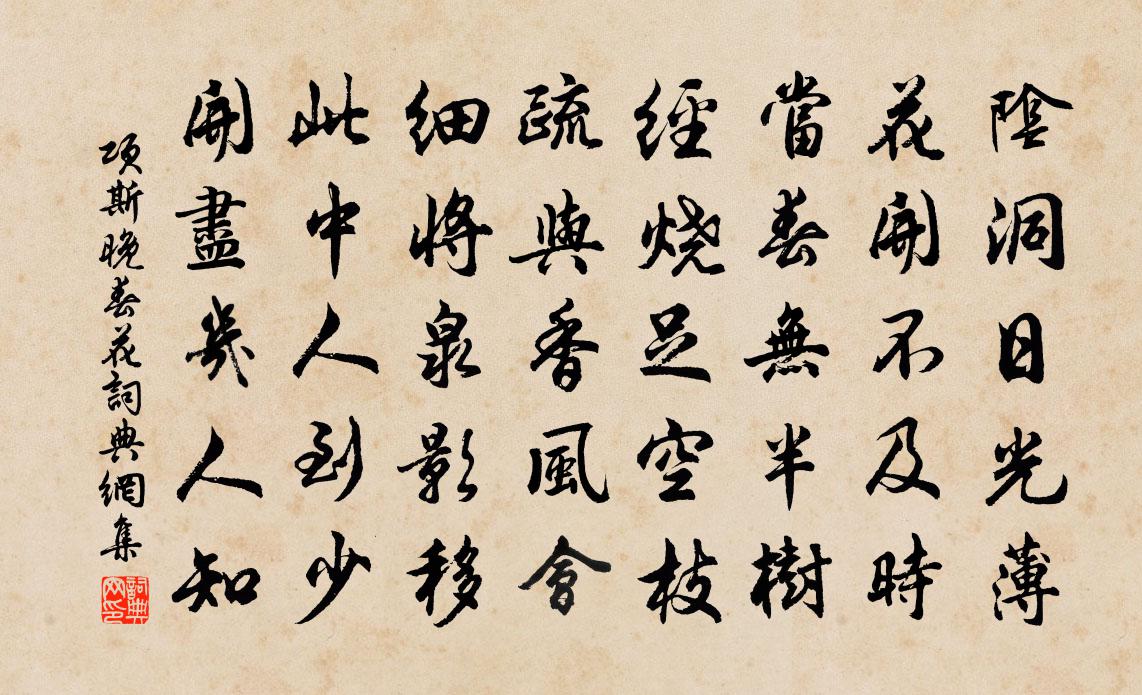 陰洞日光薄
花開不及時
當春無半樹
經燒足空枝
疏與香風會
細將泉影移
此中人到少
開盡幾人知
項斯晚春花詞典網集
詞典網印